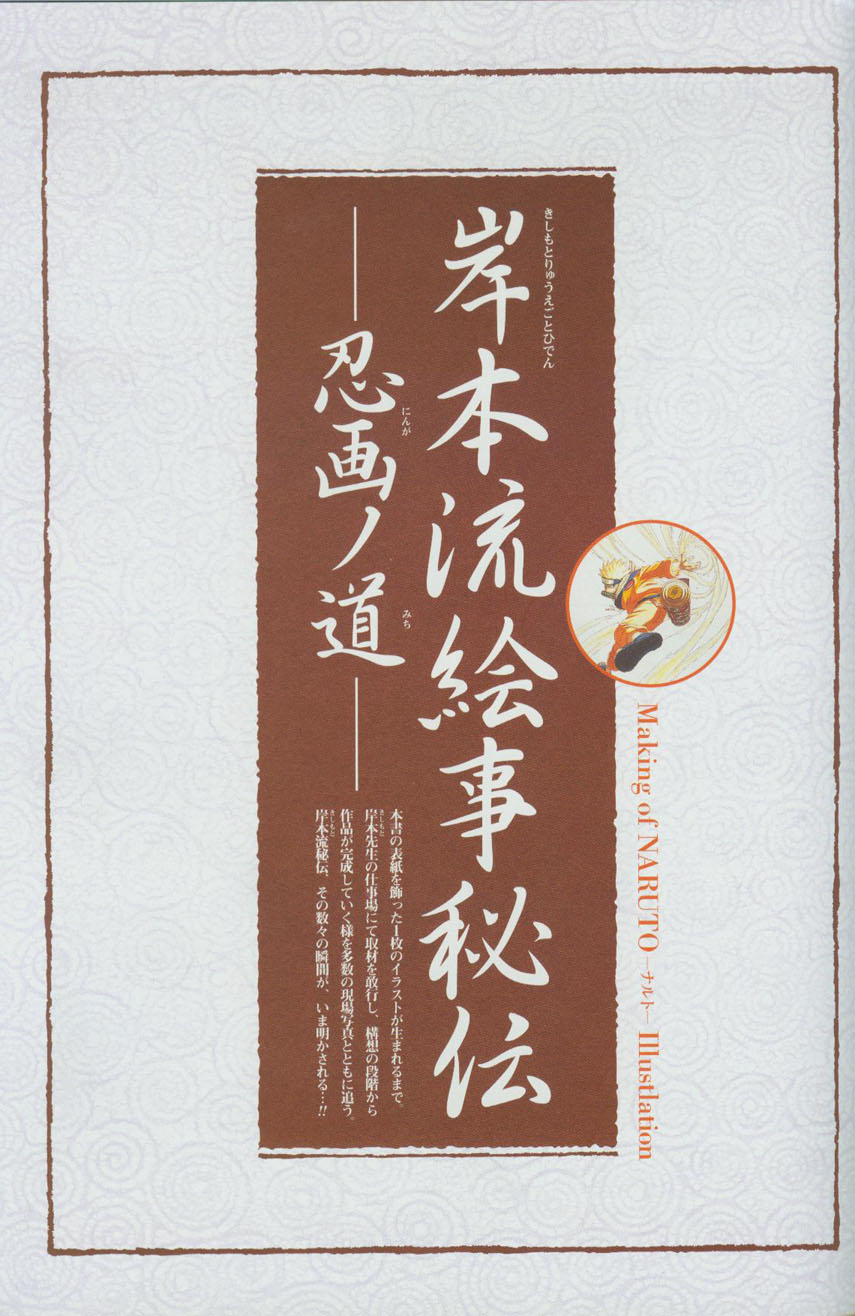 きしもとりゅうえごとひでん
岸本流絵事秘伝
にんが みち
―忍画ノ道―
本書の表紙を飾った1枚のイラストが生まれるまで。
きしもと
岸本先生の仕事場にて取材を敢行し、構想の段階から
作品が完成していく様を多数の現場写真とともに追う。
きしもと
岸本流秘伝、その数々の瞬間が、いま明かされる…!!
Making of NARUTO―ナルト―Illustlation